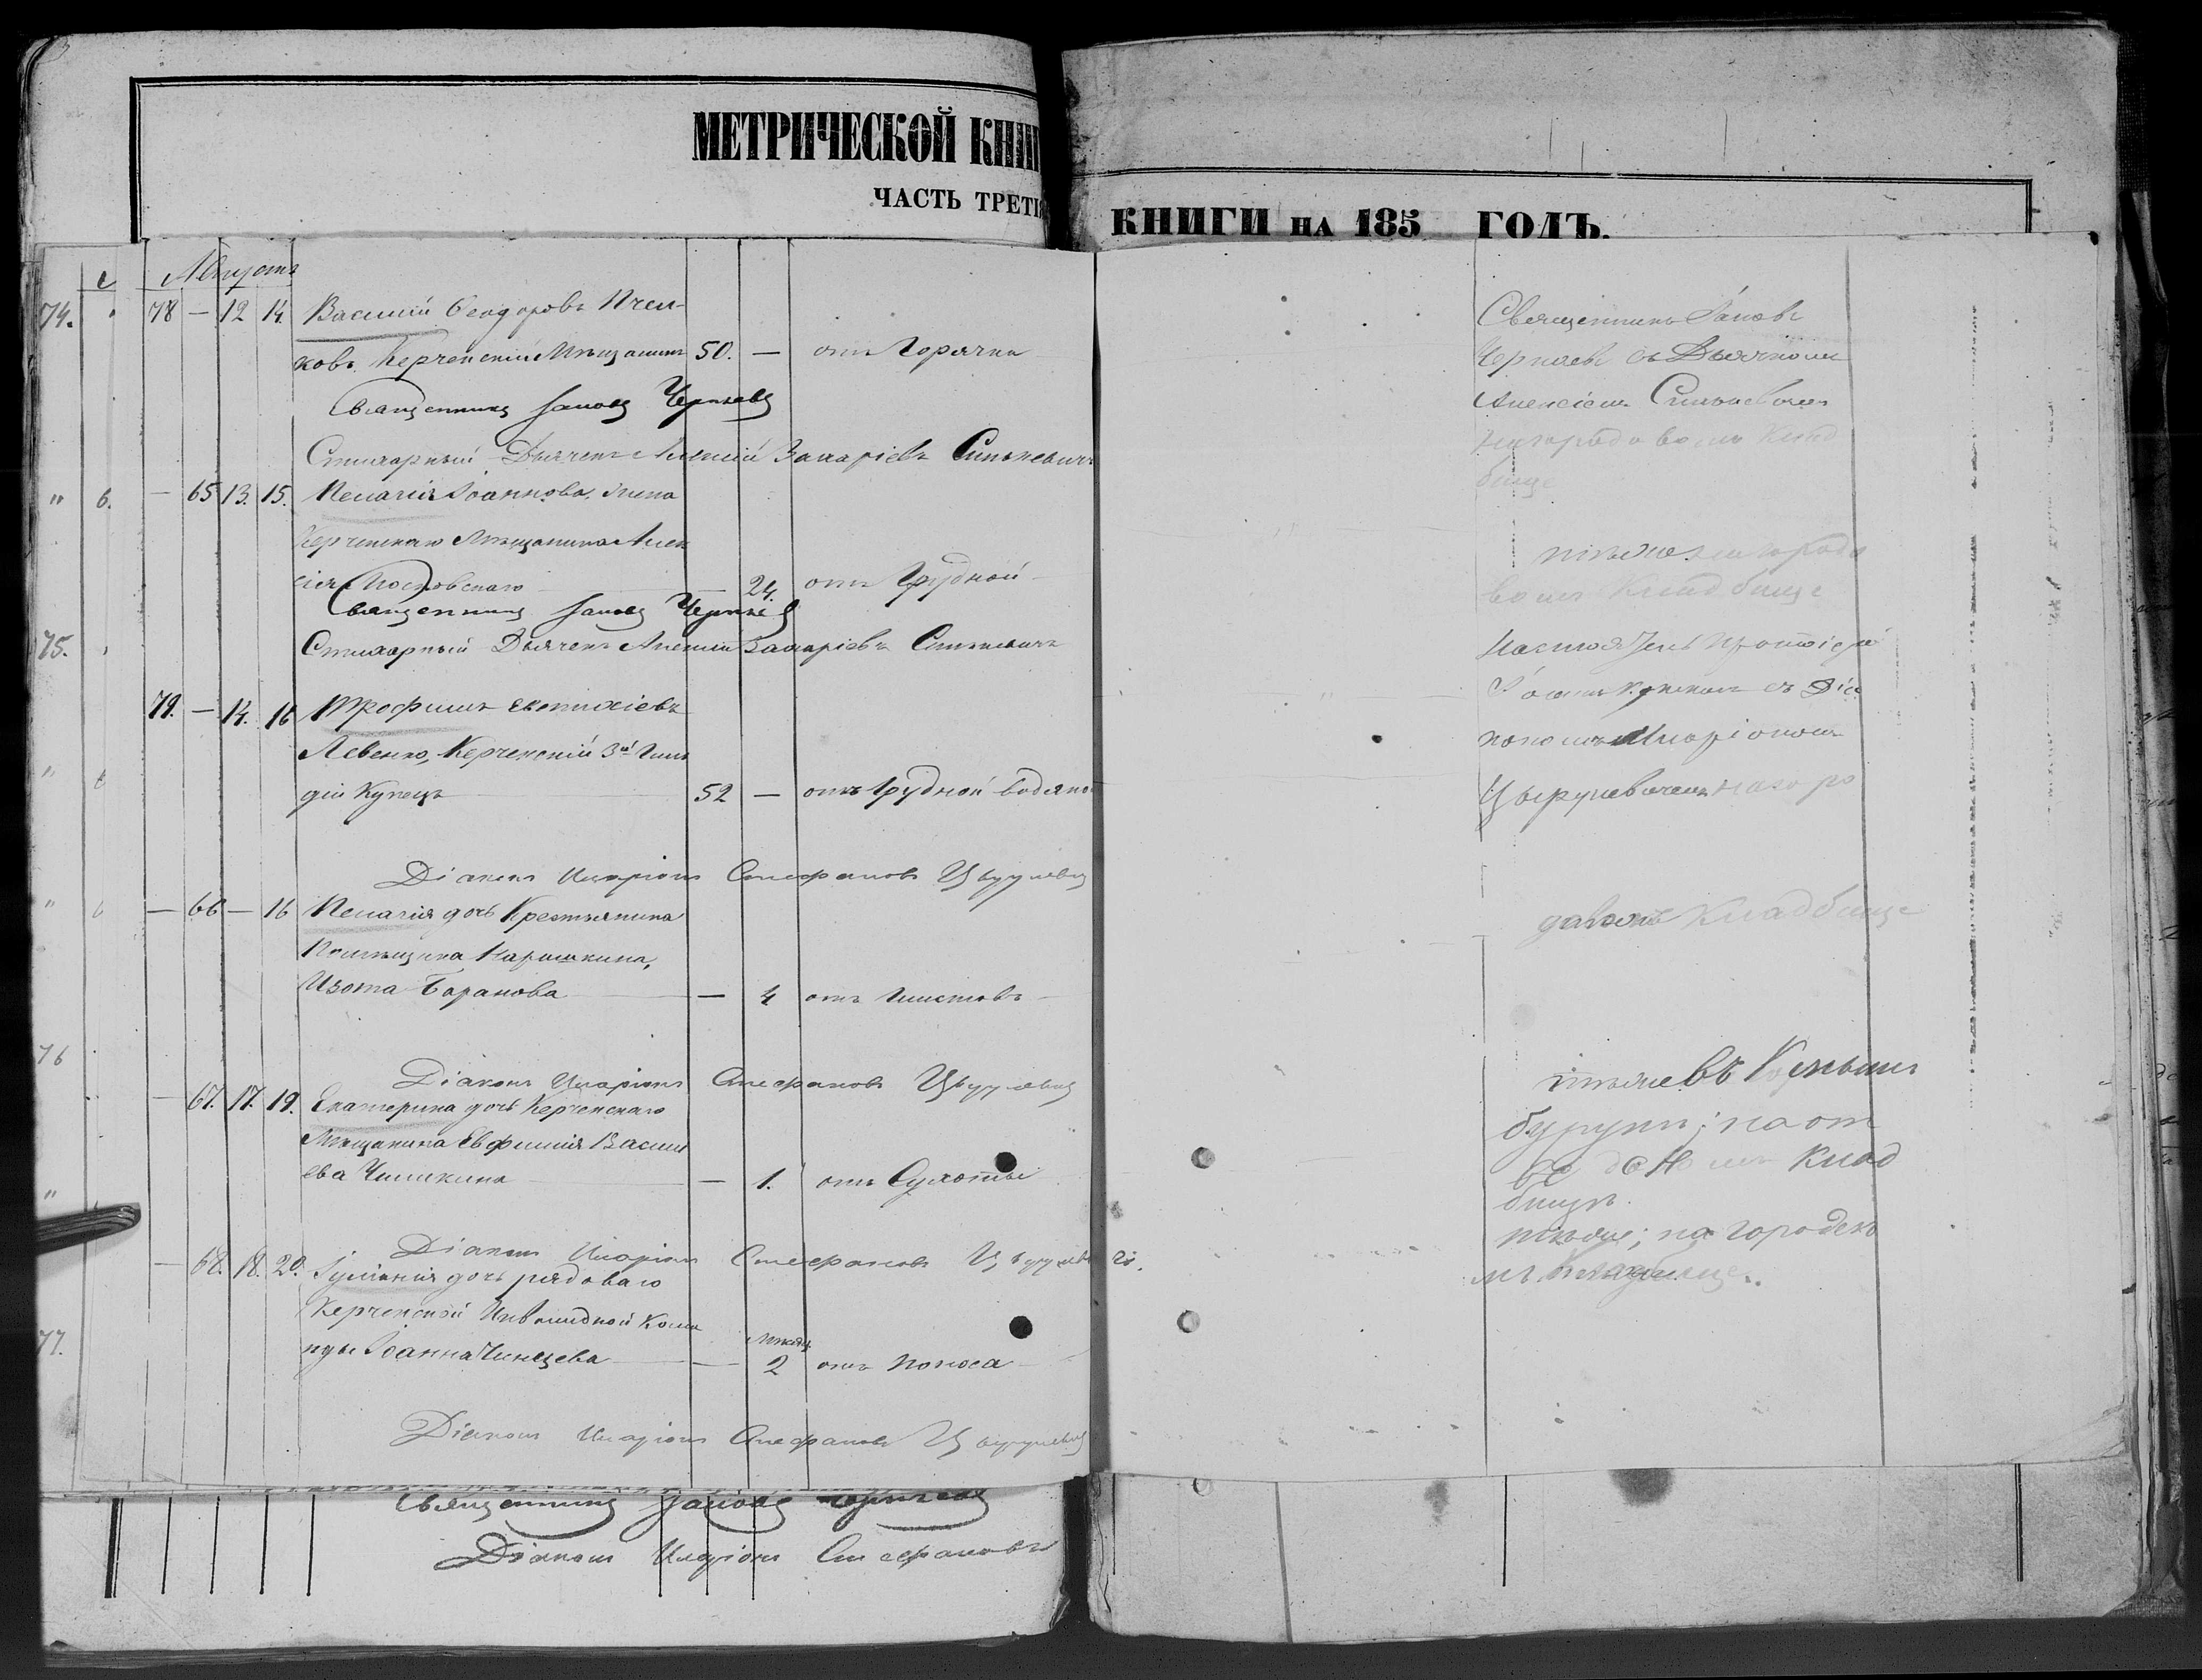 МЕТРИЧЕСКОЙ КНИГ
ЧАСТЬ ТРЕТІЯ
КНИГИ НА 185 ГОДЪ.
Августъ
74.
78 — 12 14. Василій Ѳеодоровъ Пчел-
ковъ Керченскій Мѣщанинъ 50. — отъ Горячки
Священникъ Іаковъ Черняевъ
Стихарный Дьячекъ Алексій Захаріевъ Синькевичъ
" 6. — 65 13. 15. Пелагія Іоаннова, жена
Керченскаго Мѣщанина Алек
сія Мостовскаго — 24. отъ Грудной
Священникъ Іаковъ Черняев
75.
Стихарный Дьячекъ Алексій Захаріевъ Синькевичъ
79. — 14. 16 Трофимъ Евтихіевъ
Левенко, Керченскій 3й Гиль
діи Купецъ 52 — отъ Грудной водяной
Діаконъ Иларіонъ Стефановъ Цырулевич
— 66 — 16 Пелагія дочь Крестьянина
Помѣщика Нарышкина,
Изота Баранова — 4 отъ Глистовъ
76
Діаконъ Иларіонъ Стефановъ Цырулевич
— 67. 17. 19. Екатерина дочь Керченскаго
Мѣщанина Евфимія Васил
ева Чишкина — 1. отъ Сухоты
Діаконъ Иларіонъ Стефановъ Цырулевичъ.
— 68. 18. 20. Іуліанія дочь рядоваго
Керченской Инвалидной Кома
нды Іоанна — мѣсяц 2 отъ поноса
77.
Діаконъ Иларіонъ Стефановъ Цырулевич
Священникъ Іаковъ Черняевъ
Діаконъ Иларіонъ Стефановъ
Священникъ Іаковъ
Черняевъ съ Дьячкомъ
Алексіемъ Синькевичем
на городовомъ Клад
бище
тѣже на городо
вомъ Кладбище
Настоятель Протоіерей
Іоаннъ съ Діа
кономъ Иларіономъ
Цырулевичемъ на горо
довомъ Кладбище
тѣже въ
бурунѣ; на от
Клад
бищѣ.
тѣже; на Городско
мъ Кладбище.